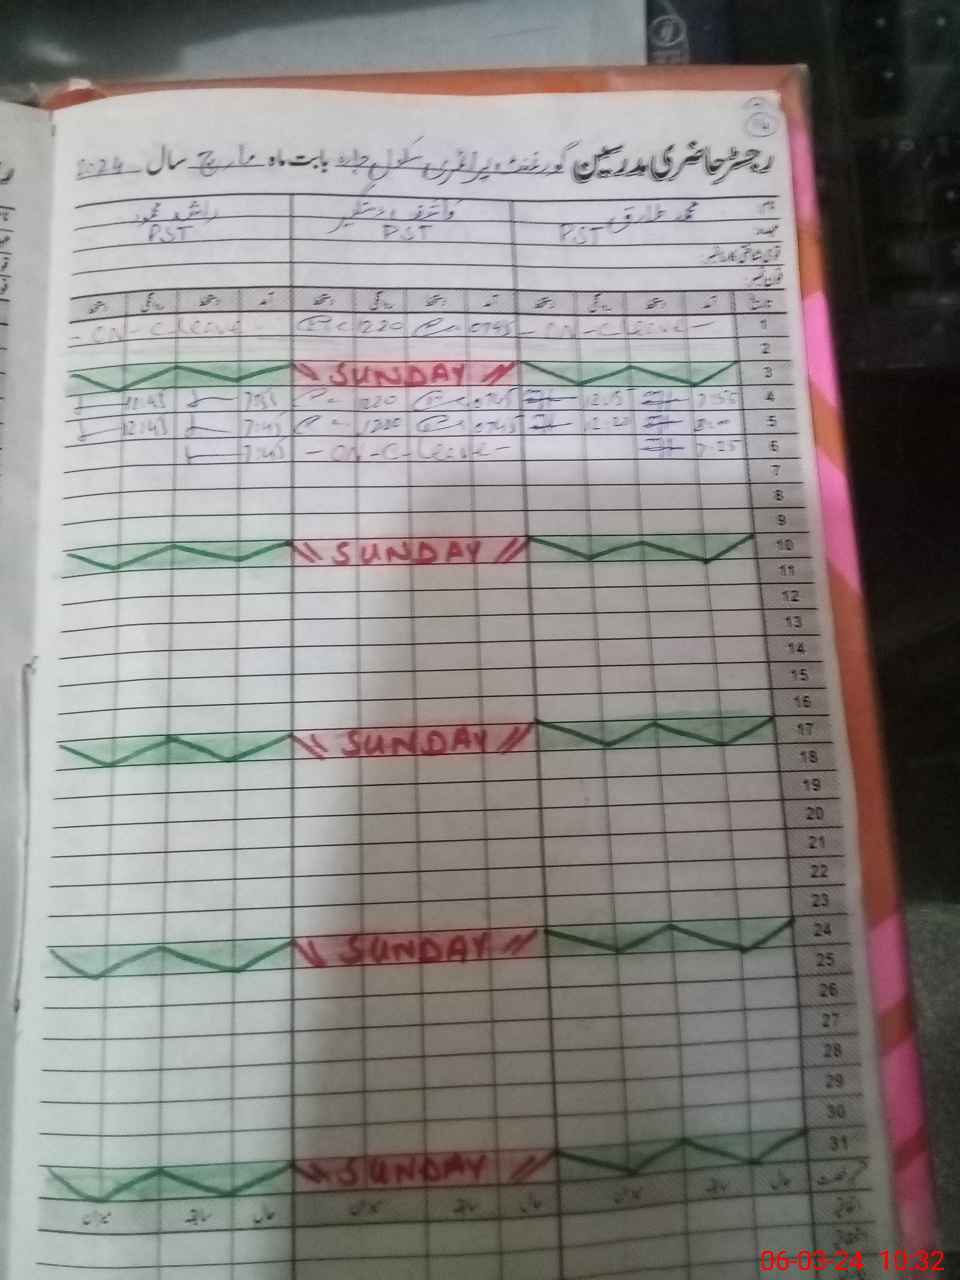 رجسٹر حاضری مدرسین گورنمنٹ پرائمری سکول بابت ماہ مارچ سال 2024
نام محمد طارق راشد محمود
عہدہ PST PST PST
قومی شناختی کارڈ نمبر:
فون نمبر:
تاریخ آمد دستخط روانگی دستخط آمد دستخط روانگی دستخط آمد دستخط روانگی دستخط
1 - ON - C leave - 0745 1220 - ON - C leave -
2
3 SUNDAY
4 7:55 12:15 0745 1220 12:45
5 8:00 12:20 0745 1220 7:45 12:45
6 7:25 - ON - C - Leave - 7:45
7
8
9
10 SUNDAY
11
12
13
14
15
16
17 SUNDAY
18
19
20
21
22
23
24 SUNDAY
25
26
27
28
29
30
31 SUNDAY
حال سابقہ میزان حال سابقہ میزان حال سابقہ میزان
اتفاقیہ
06-03-24 10:32